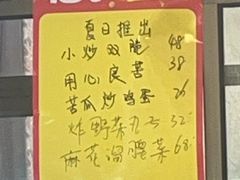 夏日推出
小炒双脆 48
用心良苦 38
苦瓜炒鸡蛋 26
炸野菜丸子 32
麻花溜腰菜 68